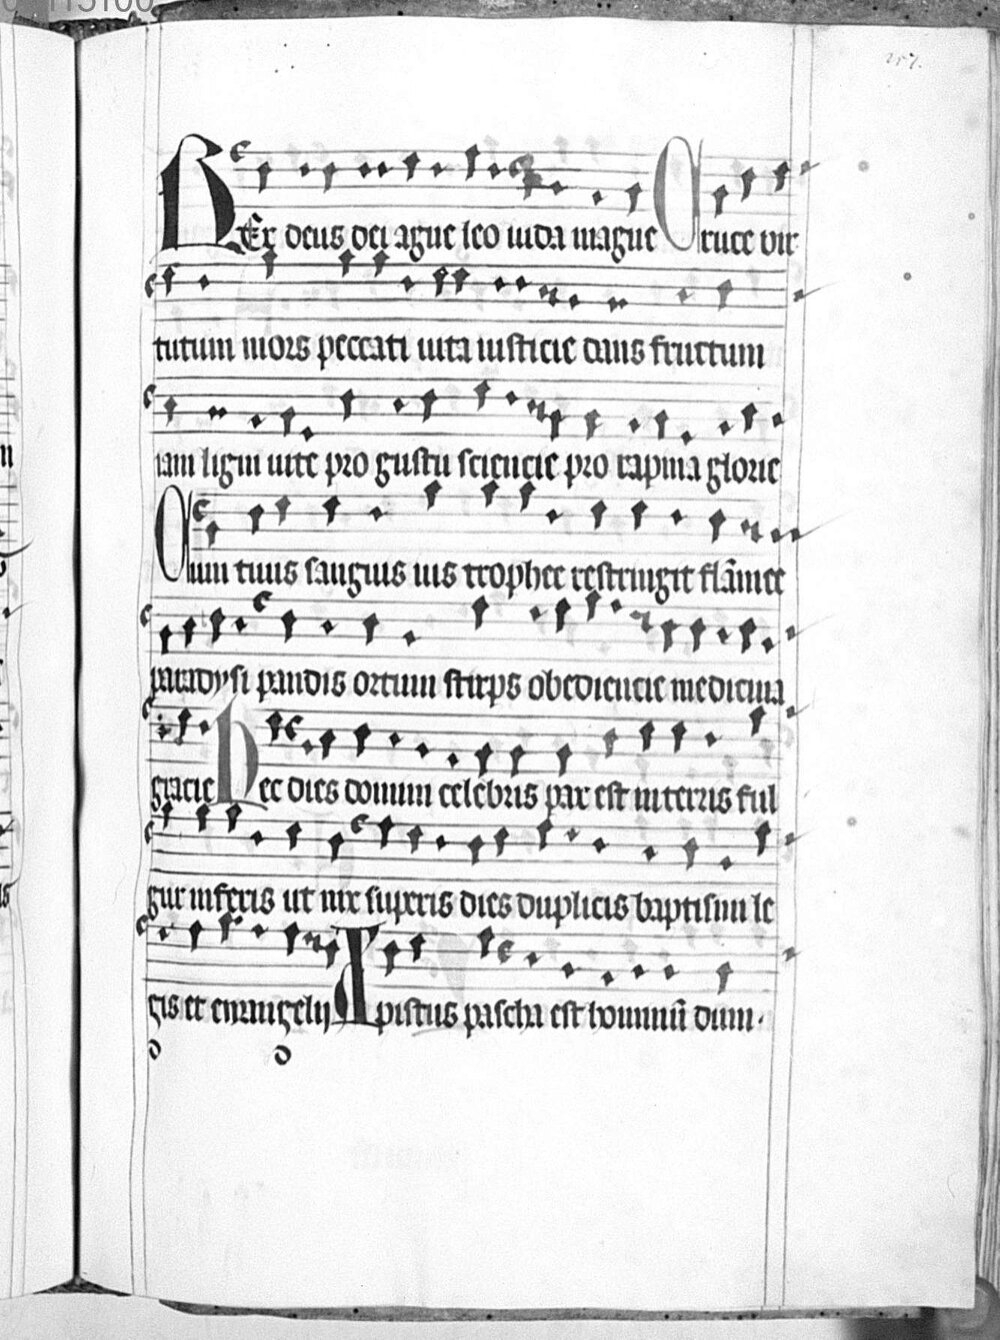 257.
REx deus dei agne leo iuda magne Cruce vir
tutum mors peccati uita iusticie dans fructum
iam ligni uite pro gustu sciencie pro rapina glorie
Cum tuus sanguis uis trophee restringit flāmee
paradysi pandis ortum stirps obediencie medicina
gracie Hec dies domini celebris pax est in terris ful
gur inferis ut nix superis dies duplicis baptismi le
gis et ewangelij Xpistus pascha est hominū dum.